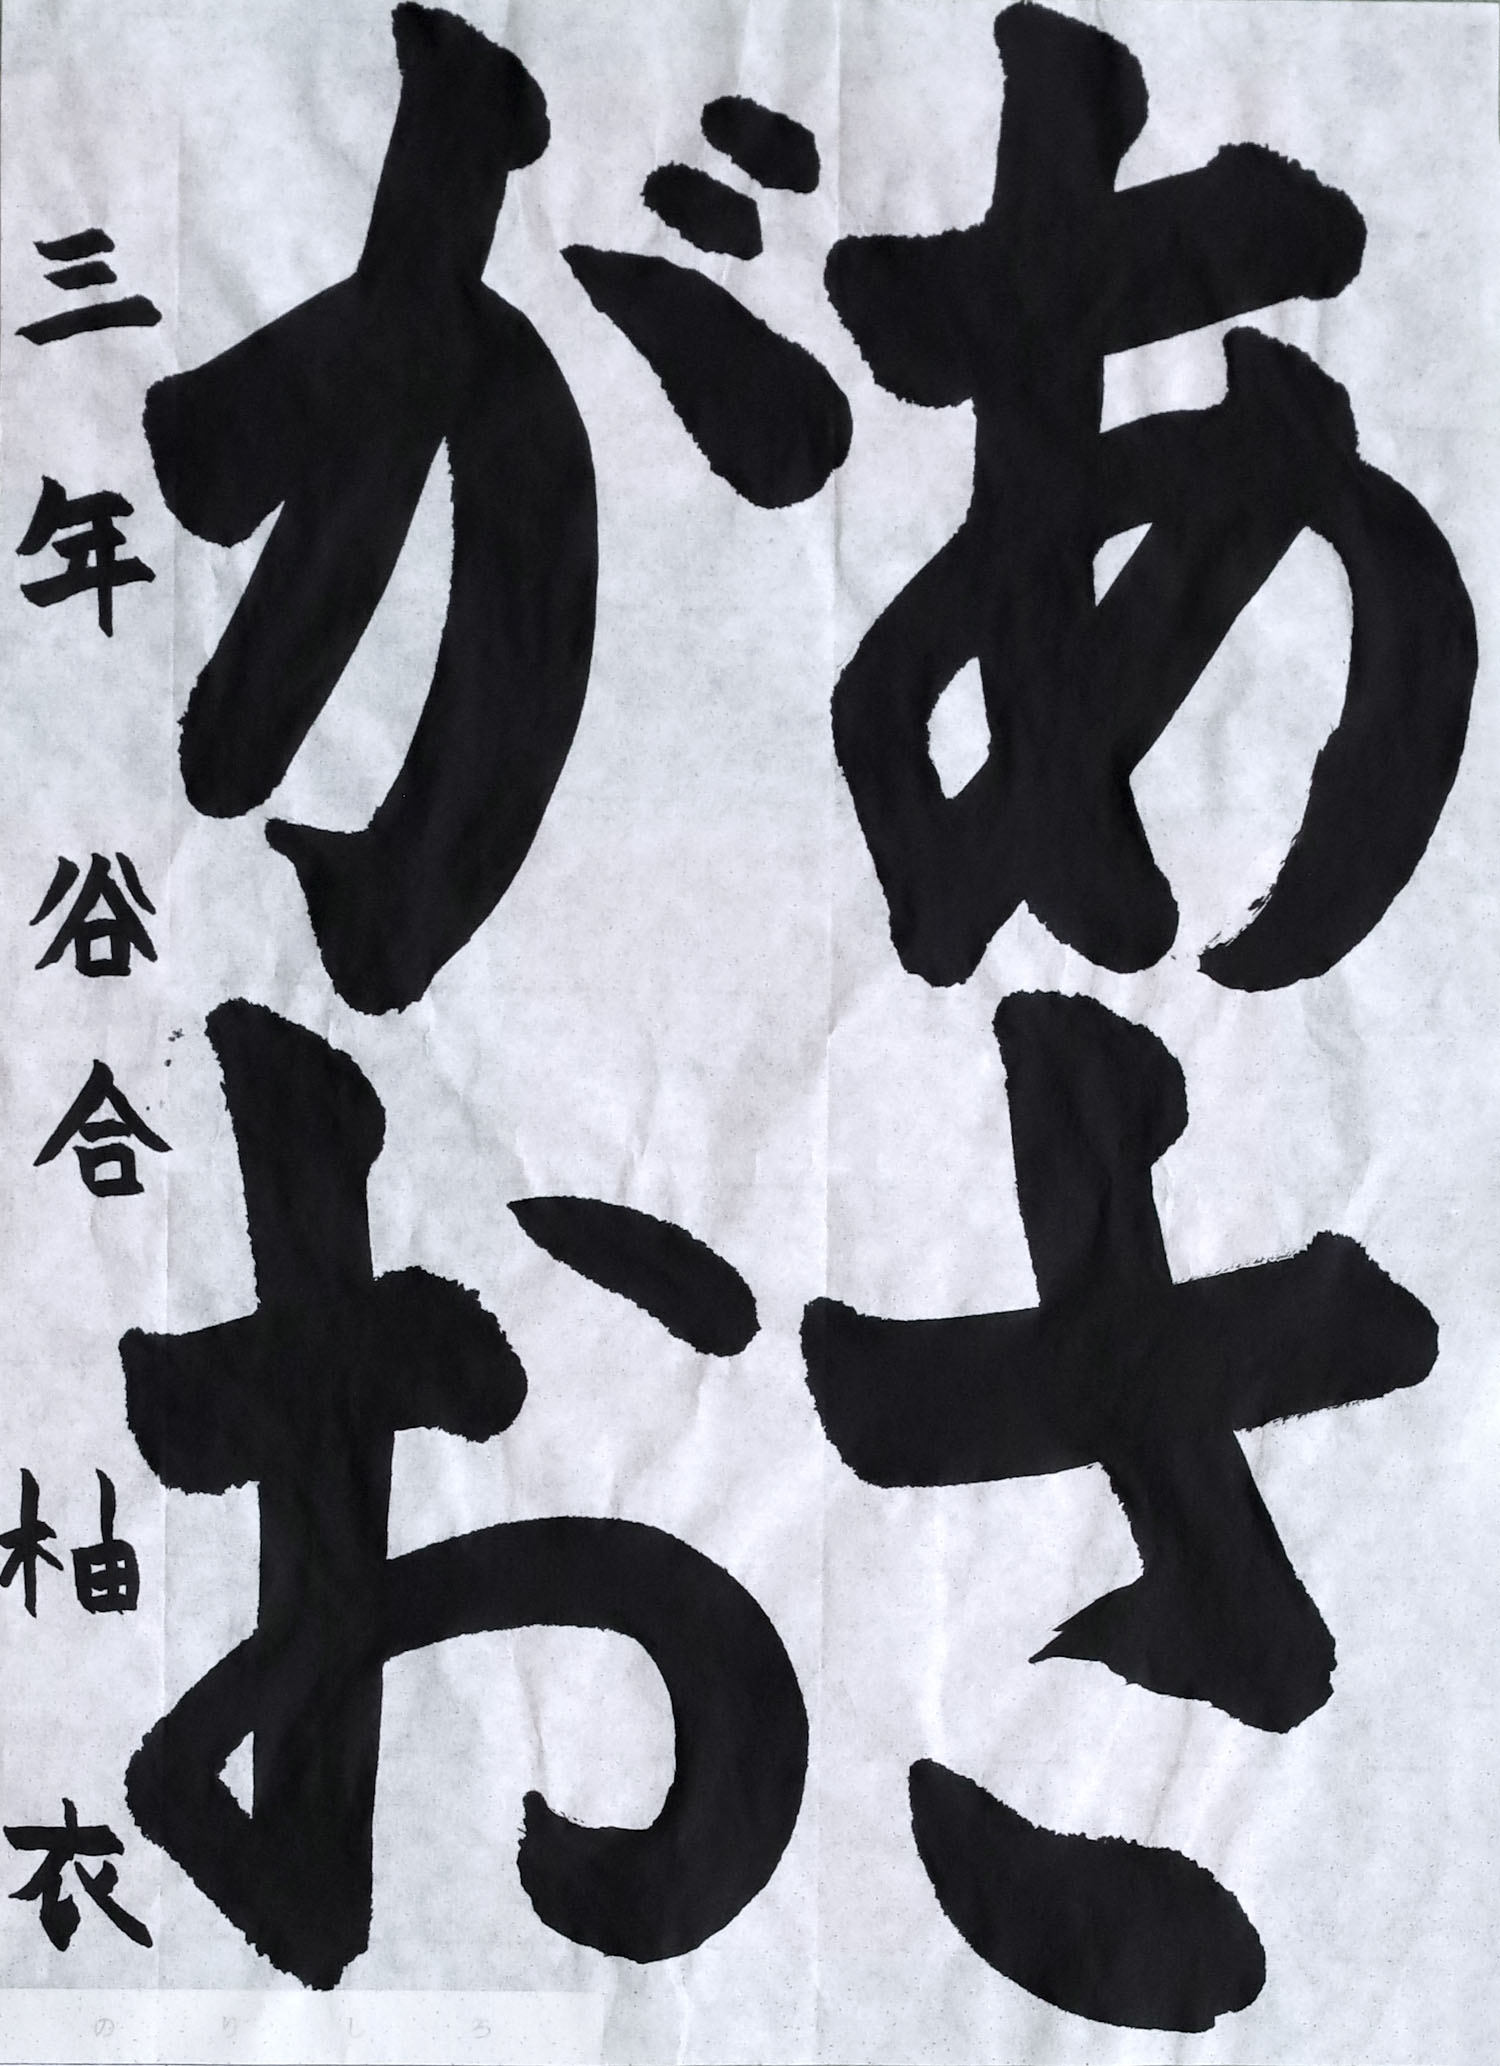 あさ
がお
三年 谷合 柚衣
のりしろ